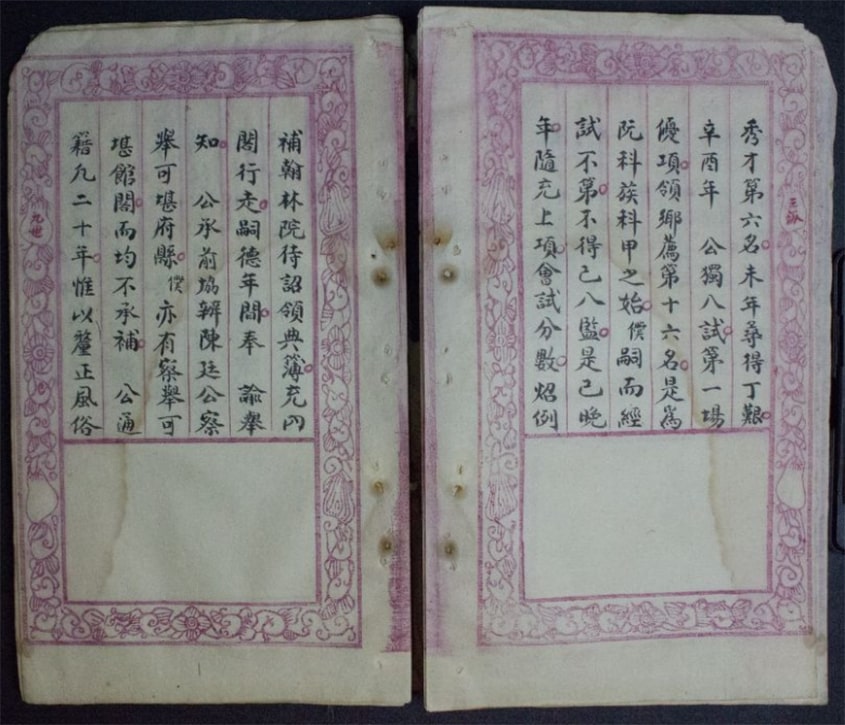 秀才第六名未年尋得丁艱
辛酉年 公獨入試第一場
優項領鄉薦第十六名是為
阮科族科甲之始僕嗣而經
試不第不得已入監是已晚
年隨充上項會試分數炤例
補翰林院待詔領典簿充内
閣行走嗣德年間奉 諭舉
知 公承前辦陳廷公察
舉可堪府縣僕亦有察舉可
堪館閣而均不承補 公通
籍凢二十年惟以釐正風俗
九世